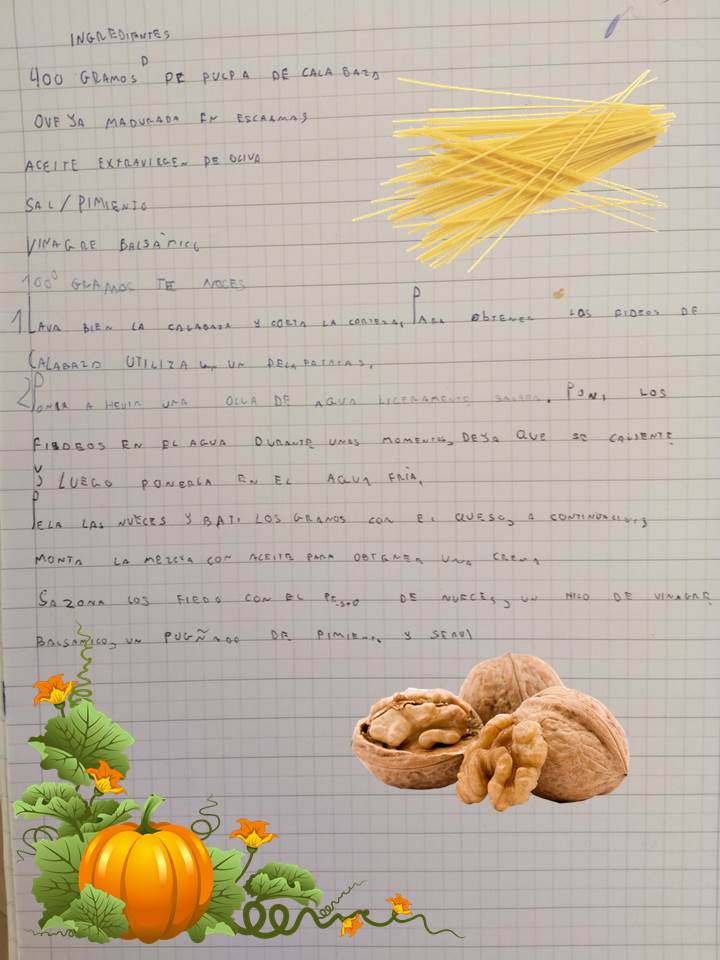 INGREDIANTES
400 GRAMOS D DE PULPA DE CALABAZO
OVEJA MADURADA EN ESCAMAS
ACEITE EXTRAVIRGEN DE OLIVA
SAL/PIMIENTO
VINAGRE BALSÀMICO
100° GRAMOS TE NOCES
1 LAVA BIEN LA CALABAZA Y CORTA LA CORTEZA, PARA OBTENER LOS FIDEOS DE
CALABAZO UTILIZA UN PELAPATATAS,
2 PONGA A HEVIR UNA OLLA DE AGUA LIGERAMENTE SALADA. PONI LOS
FIDEOS EN EL AGUA DURANTE UNAS MOMENTES, DEJA QUE SE CALIENTE
Y LUEGO PONERLA EN EL AGUA FRÍA,
PELA LAS NUECES Y BATI LOS GRANOS CON EL QUESO, A CONTINUACION,
MONTA LA MEZCLA CON ACEITE PARA OBTENER UNA CREMA
SAZONA LOS FIEDO CON EL PESTO DE NUECES, UN HILO DE VINAGRE
BALSAMICO, UN PUGÑADO DE PIMIENTA Y SERVI